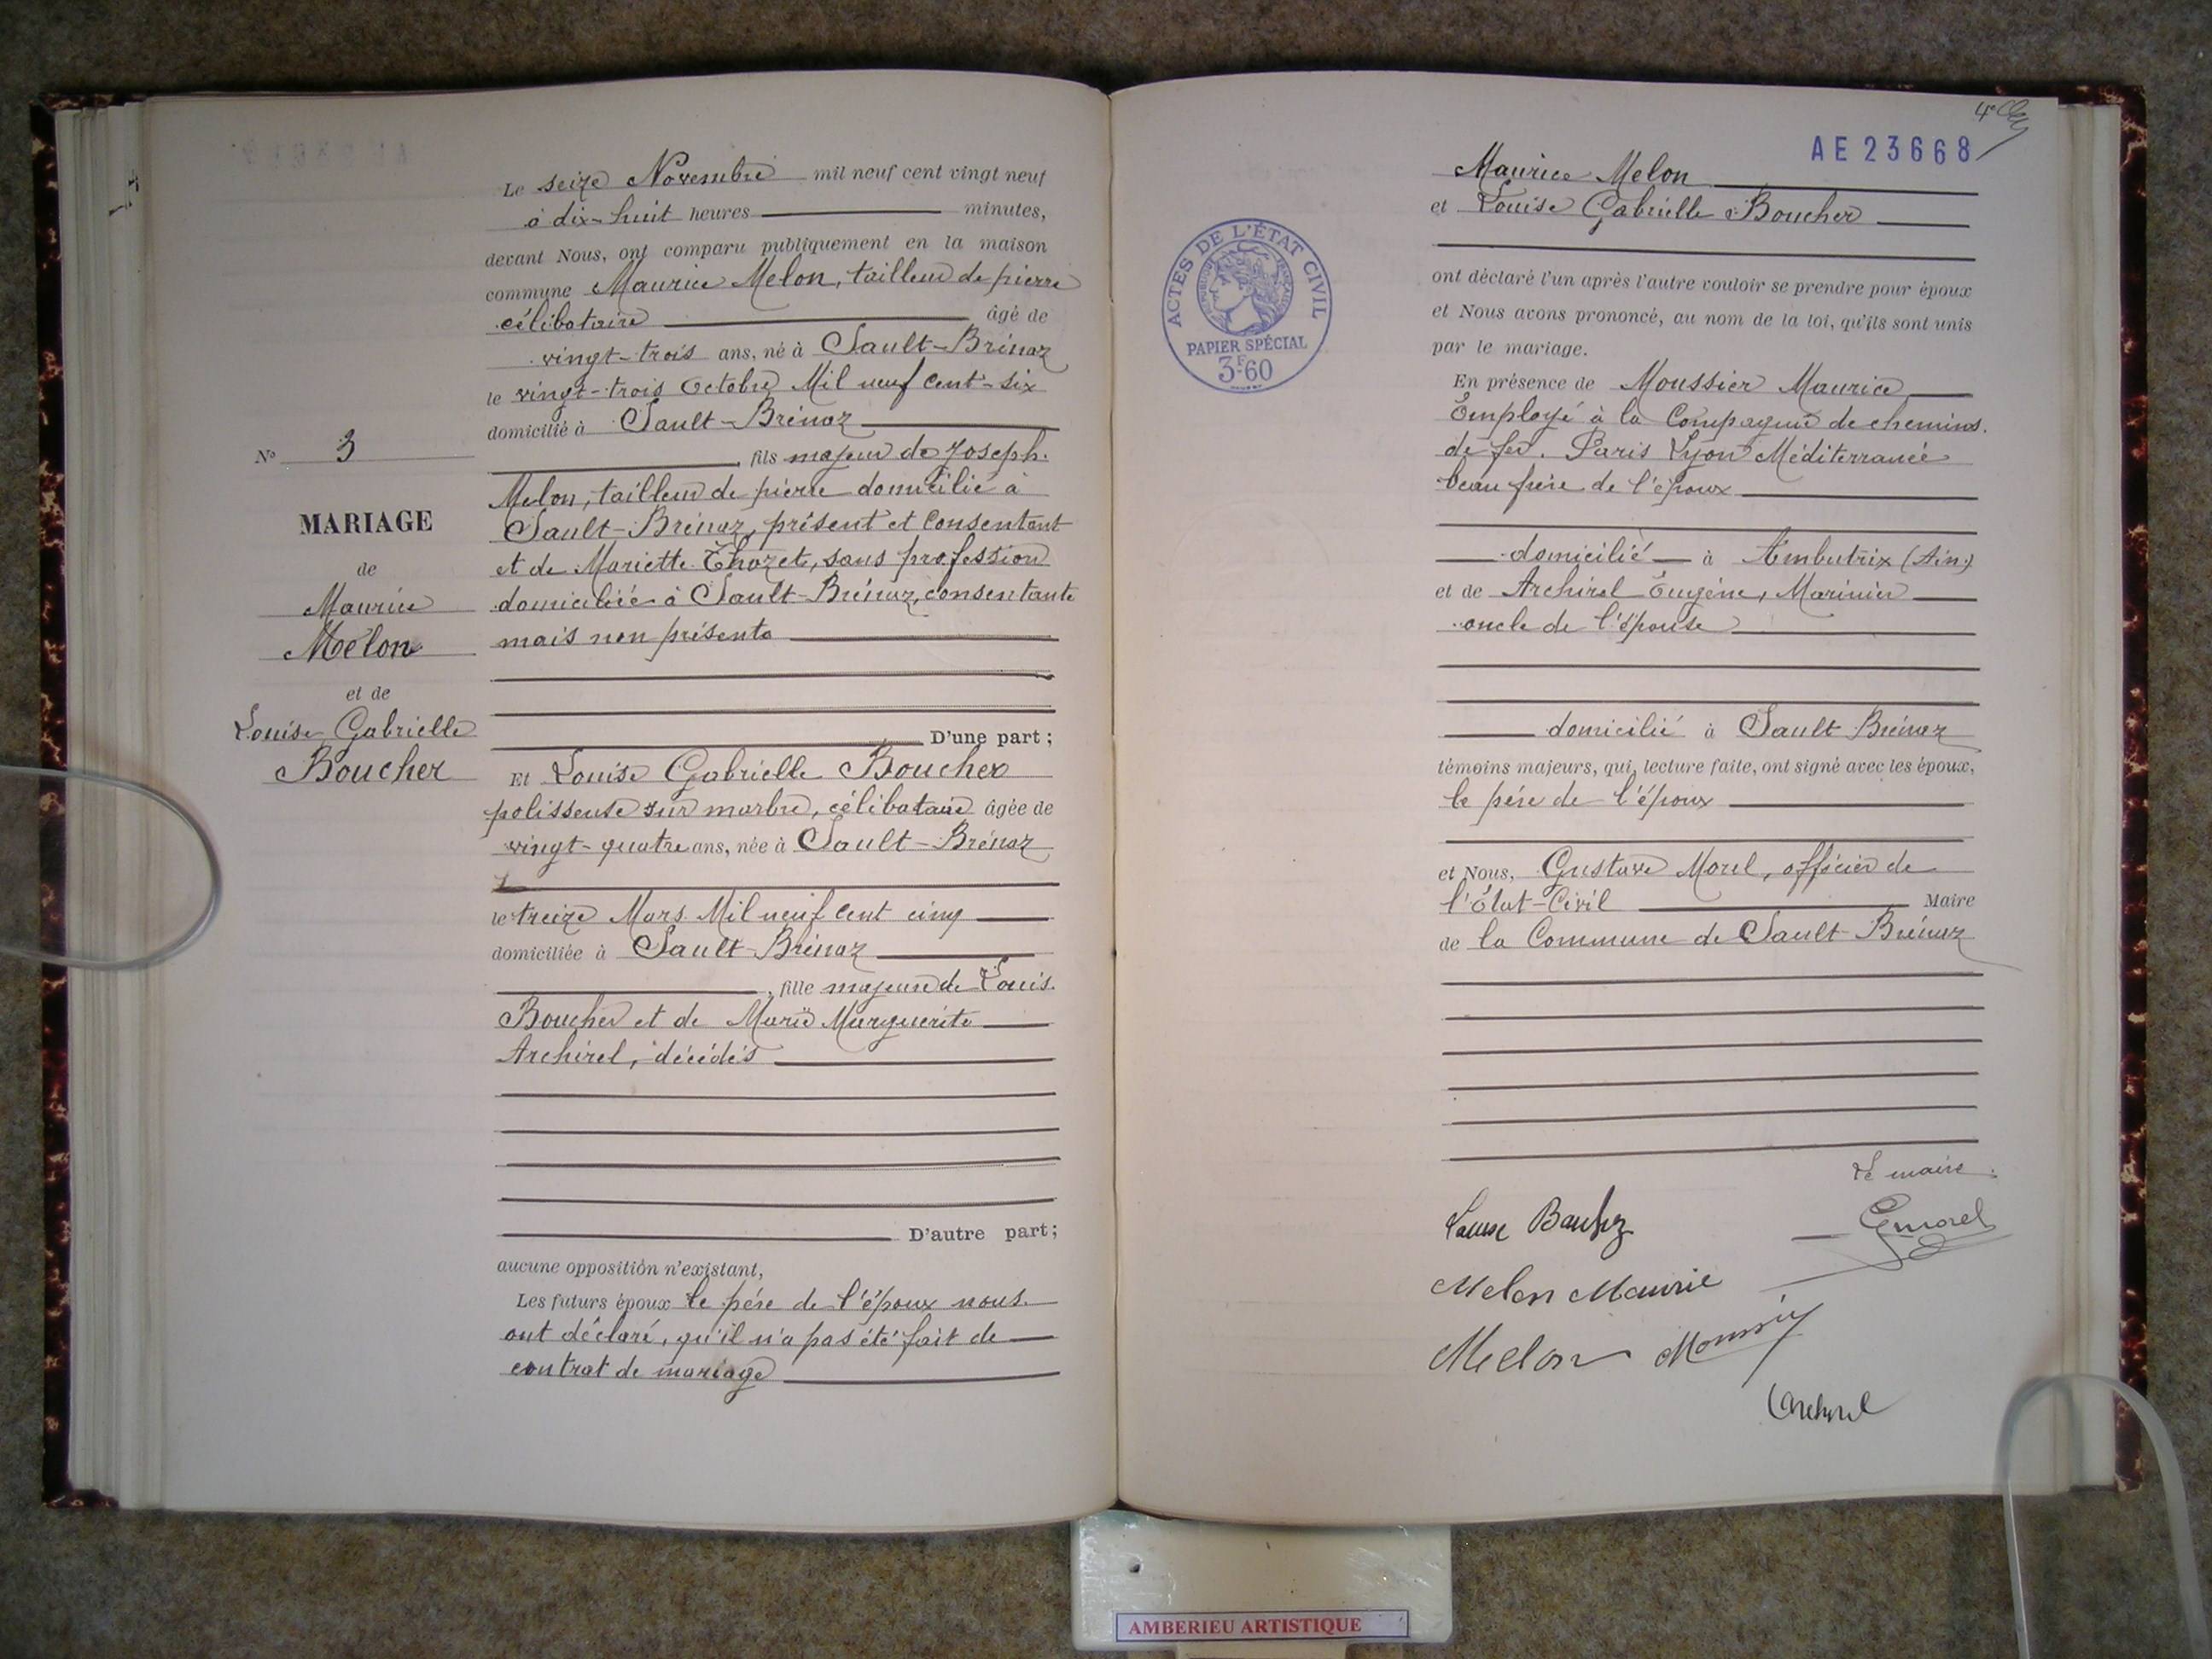 Le seize Novembre mil neuf cent vingt neuf
à dix-huit heures minutes,
devant Nous, ont comparu publiquement en la maison
commune Maurice Melon, tailleur de pierre
célibataire âgé de
vingt-trois ans, né à Sault-Brénaz
le vingt-trois Octobre Mil neuf cent-six
domicilié à Sault-Brénaz
, fils majeur de Joseph
Melon, tailleur de pierre domicilié à
Sault-Brénaz, présent et consentant
et de Mariette Thozet, sans profession
domiciliée à Sault-Brénaz, consentante
mais non présente
D'une part ;
Et Louise Gabrielle Boucher
polisseuse sur marbre, célibataire âgée de
vingt-quatre ans, née à Sault-Brénaz
le treize Mars Mil neuf cent cinq
domiciliée à Sault-Brénaz
, fille majeure de Louis
Boucher et de Marie Marguerite
Archirel, décédés
D'autre part ;
aucune opposition n'existant,
Les futurs époux le père de l'époux nous
ont déclaré, qu'il n'a pas été fait de
contrat de mariage
No 3
MARIAGE
de
Maurice
Melon
et de
Louise Gabrielle
Boucher
AE 23668
Maurice Melon
et Louise Gabrielle Boucher
ont déclaré l'un après l'autre vouloir se prendre pour époux
et Nous avons prononcé, au nom de la loi, qu'ils sont unis
par le mariage.
En présence de Moussier Maurice
Employé à la Compagnie de chemins
de fer. Paris Lyon Méditerranée
beau frère de l'époux
domicilié à Ambutrix (Ain)
et de Archirel Eugène, Marinier
oncle de l'épouse
domicilié à Sault Brénaz
témoins majeurs, qui, lecture faite, ont signé avec les époux,
le père de l'époux
et Nous, Gustave Morel, officier de
l'Etat-Civil Maire
de la Commune de Sault-Brénaz
Le maire
GMorel
Louise Boucher
Melon Maurice
Melon Moussier
Archirel
ACTES DE L'ÉTAT CIVIL
RÉPUBLIQUE FRANÇAISE
PAPIER SPÉCIAL
3F60
AMBERIEU ARTISTIQUE